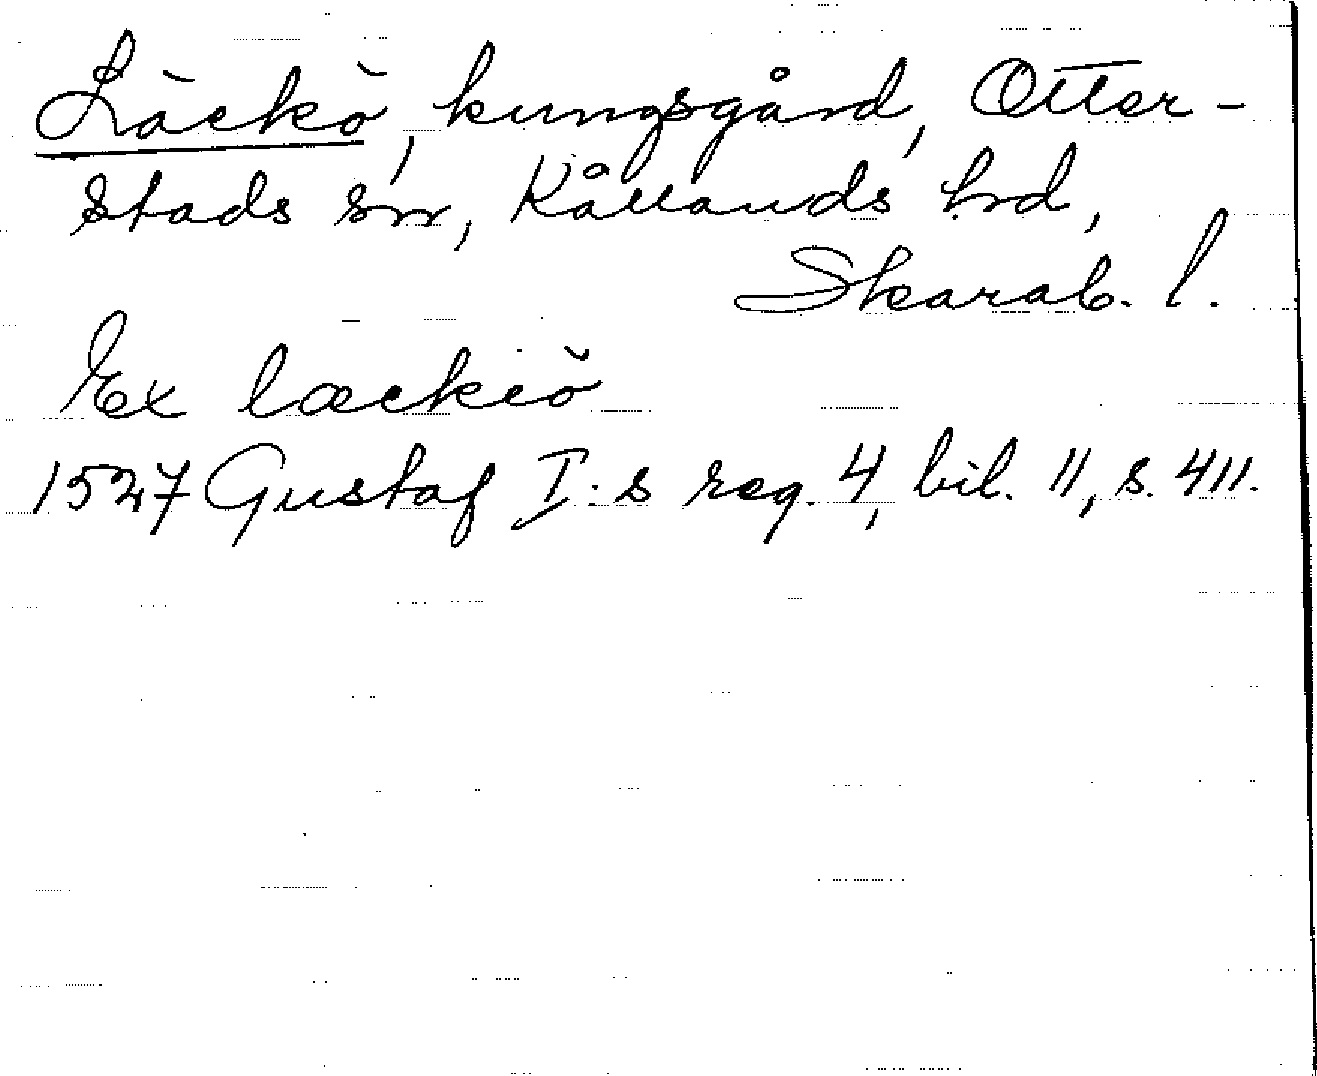 Läckö, kungsgård, Otter-
stads sn, Kållands hd,
Skarab. l.
Ex læckiö
1527 Gustaf I:s reg. 4, bil. 11, s. 411.